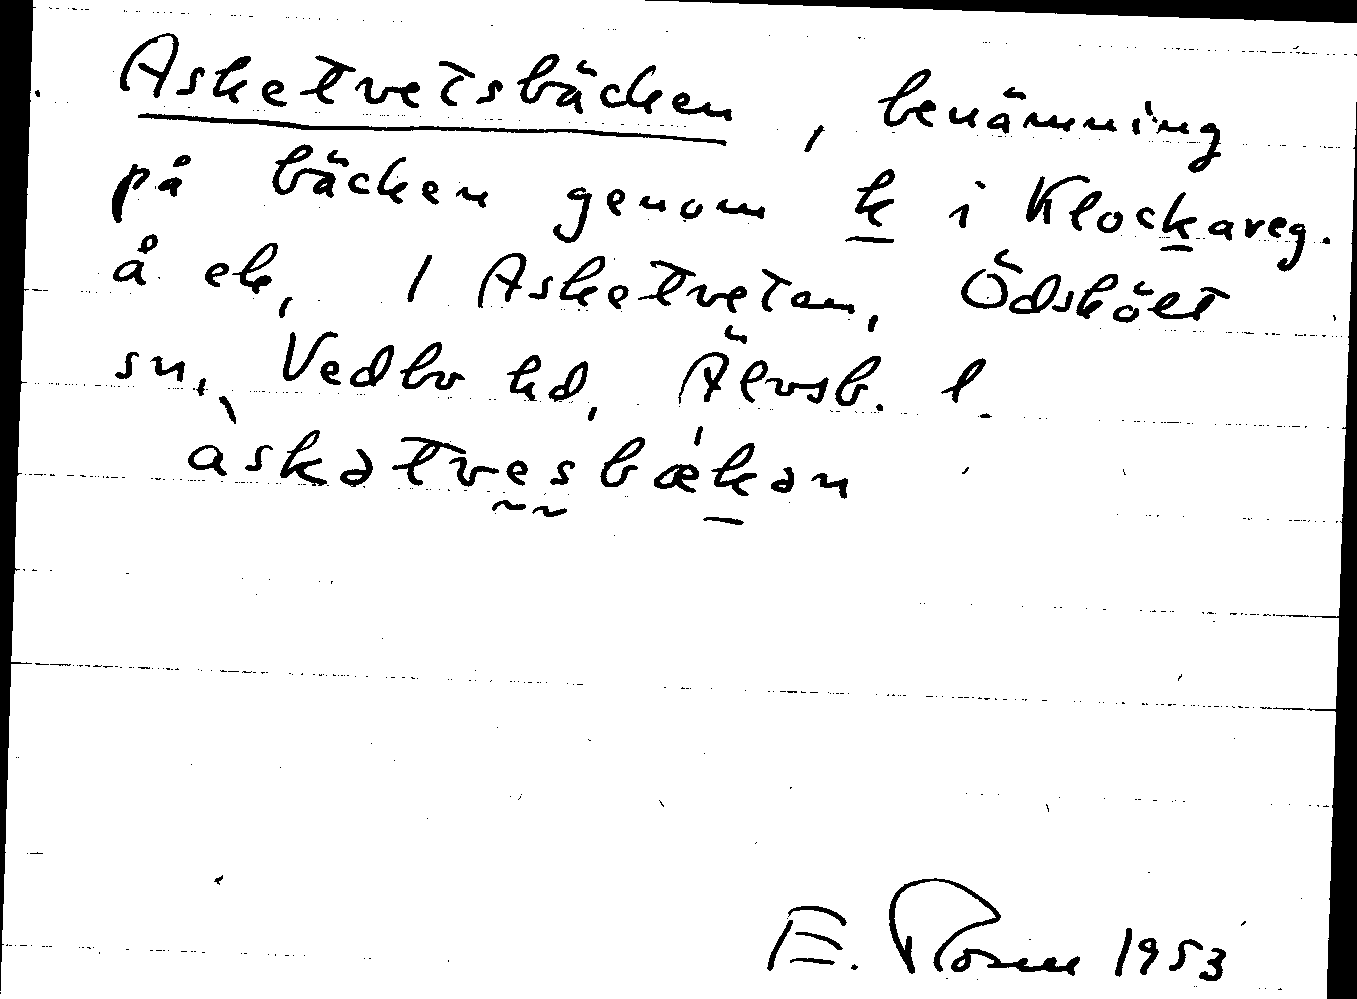 Asketvetsbäcken, benämning
på bäcken genom k i Klockareg.
å ek, 1 Asketveten, Ödskölt
sn, Vedbo hd, Älvsb. l.
àskətvesbǽkən
E. Rosen 1953